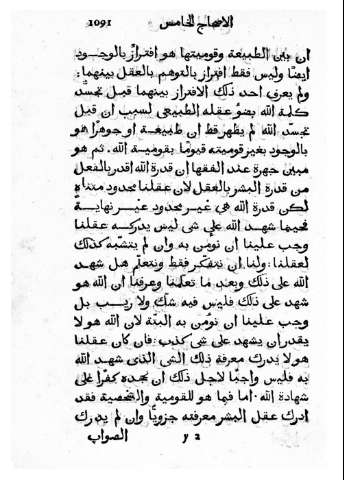 الاصحاح الخامس 1091
ان بين الطبيعة وقوميتها هو افتراز بالوجود
ايضًا وليس فقط افتراز بالتوهم بالعقل بينهما:
ولم يعرف احد ذلك الافتراز بينهما قبل تجسد
كلمة الله بضو عقله الطبيعي لسبب ان قبل
تجسد الله لم يظهر قط ان طبيعة او جوهرًا هو
بالوجود بغير قوميته قيومًا بقومية الله. ثم هو
مبين جهرة عند الفقها ان قدرة الله اقدر بالفعل
من قدرة البشر بالعقل لان عقلنا محدود متناه
لكن قدرة الله هي غير محدود غير نهاية
فحينما شهد الله على شي ليس يدركه عقلنا
وجب علينا ان نومن به وان لم يتشبه كذلك
لعقلنا: ولنا ان نتفكر فقط ونتعلم هل شهد
الله على ذلك وبعد ما تعلمنا وعرفنا ان الله هو
شهد على ذلك فليس فيه شك ولا ريب بل
وجب علينا ان نومن به البتة لان الله هو لا
يقدر ان يشهد على شي كذب: فان كان عقلنا
هو لا يدرك معرفة ذلك الشي الذى شهد الله
به فليس واجبًا لاجل ذلك ان نجحده كفرًا على
شهادة الله. اما فها هو للقومية والشخصية فقد
ادرك عقل البشر معرفته جزويًا وان لم يدرك
الصواب